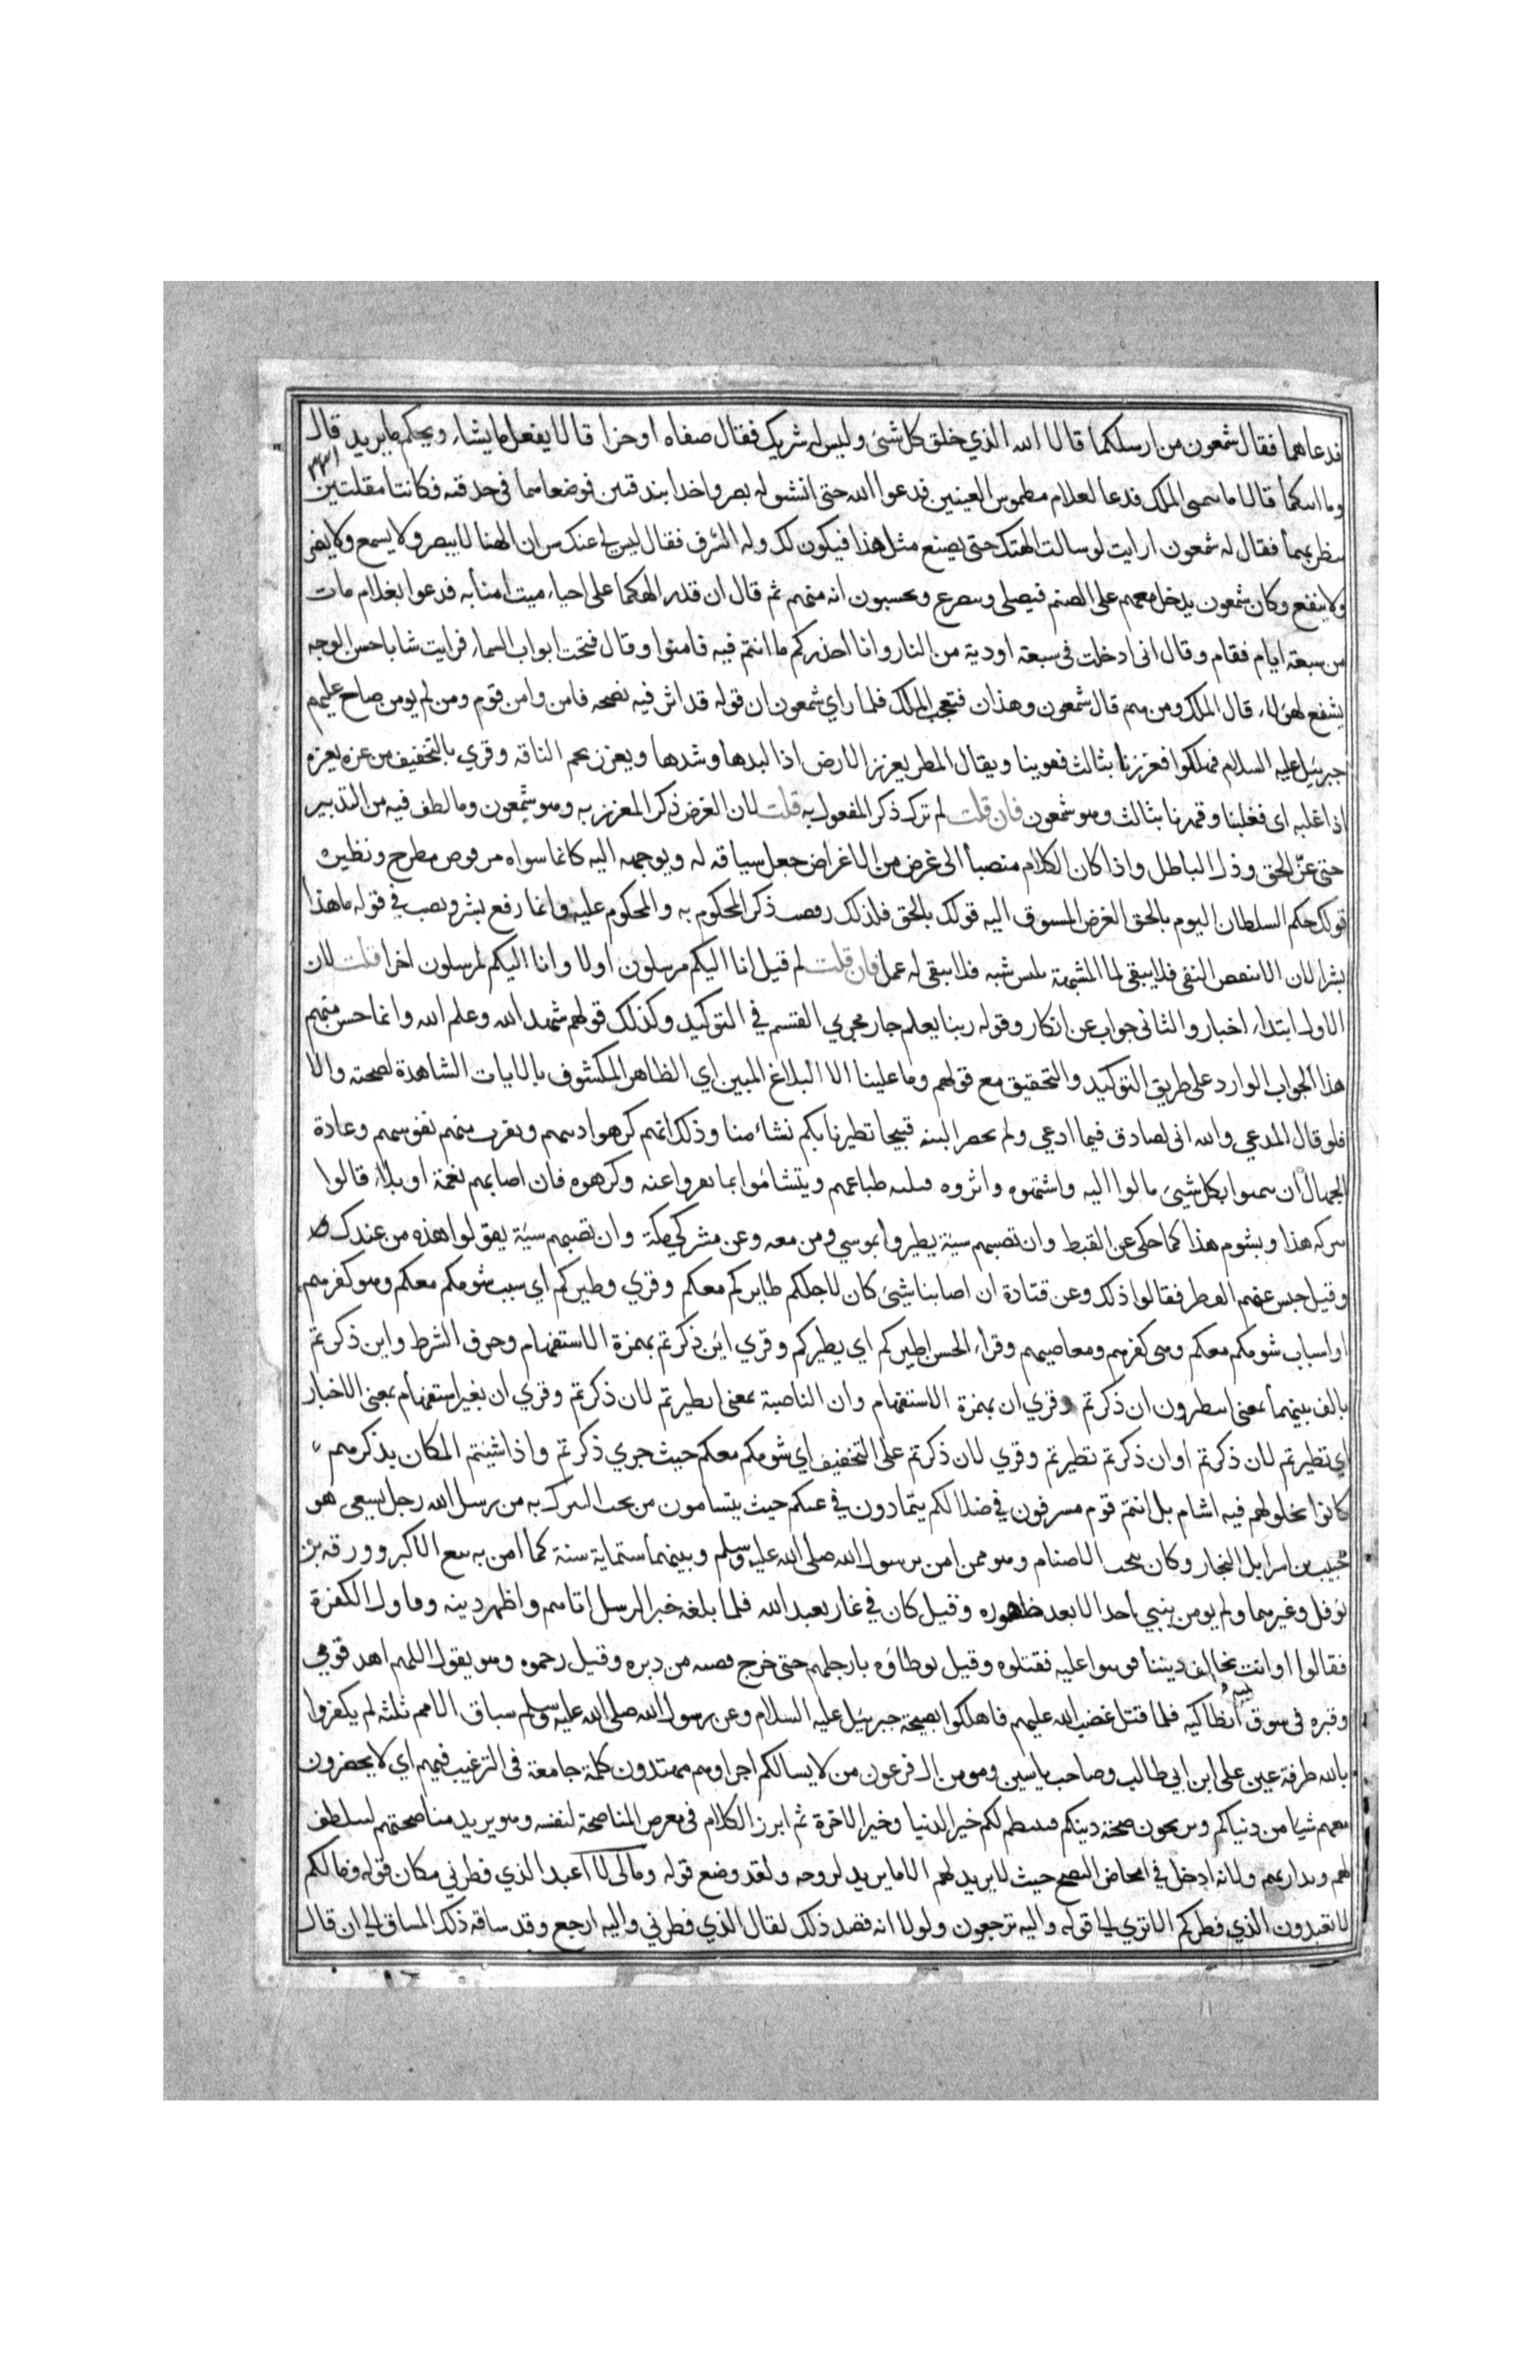 فدعاهما فقال شمعون من ارسلكما قالا الله الذي خلق كل شئ وليس له شريك فقال صفاه اوجزا قالا يفعل ما يشاء ويحكم ما يريد قال
٣٣١
وما اسكما قالا ما يتمنى الملك فدعا لغلام مطموس العينين فدعوا الله حتى انشق له بصر واخذا بندقتين فوضعاهما في حدقته فكانتا مقلتين
ينظر بهما فقال له شمعون ارايت لو سالت الهتك حتى يصنع مثل هذا فيكون لك وله الشرف فقال ليس لي عنك سر ان الهنا لا يبصر ولا يسمع ولا يضر
ولا ينفع وكان شمعون يدخل معهم على الصنم فيصلي ويتضرع ويحسبون انه منهم ثم قال ان قدر الهكما على احياء ميت امنا به فدعوا بغلام مات
من سبعة ايام فقام وقال انى ادخلت في سبعة اودية من النار وانا احذركم ما انتم فيه فامنوا وقال فتحت ابواب السماء فرايت شابا حسن الوجه
يشفع لهؤلاء قال الملك ومن هم قال شمعون وهذان فتعجب الملك فلما راي شمعون ان قوله قد اثر فيه نصحه فامن وامن قوم ومن لم يومن صاح عليهم
جبرئيل عليه السلام فهلكوا فعززنا بثالث فقوينا ويقال المطر يعزز الارض اذا لبدها وشدها ويعزز لحم الناقه وقري بالتخفيف من عزه يعزه
اذا غلبه اى فغلبنا وقهرنا بثالث وهو شمعون فان قلت لم ترك ذكر المفعول به قلت لان الغرض ذكر المعزز به وهو شمعون وما لطف فيه من التدبير
حتى عزّ الحق وذل الباطل واذا كان الكلام منصبا الى غرض من الاغراض جعل سياقه له ويوجهه اليه كانما سواه مرفوض مطرح ونظيره
قولك حكم السلطان اليوم بالحق الغرض المسوق اليه قولك بالحق فلذلك رفضت ذكر المحكوم به والمحكوم عليه وانما رفع بشر ونصب في قوله ما هذا
بشرا لان الا تنقض النفى فلا يبقى لما المشبهة بليس شبه فلا يبقى له عمل فان قلت لم قيل انا اليكم مرسلون اولا وانا اليكم لمرسلون اخرا قلت لان
الاول ابتداء اخبار والثانى جواب عن انكار وقوله ربنا يعلم جار مجري القسم في التوكيد وكذلك قولهم شهد الله وعلم الله وانما حسن منهم
هذا الجواب الوارد على طريق التوكيد والتحقيق مع قولهم وما علينا الا البلاغ المبين اي الظاهر المكشوف بالايات الشاهدة لصحته والا
فلو قال المدعي والله انى لصادق فيما ادعي ولم يحضر البينه قبيحا تطيرنا بكم تشاءمنا وذلك انهم كرهوا دينهم ونفرت منهم نفوسهم وعادة
الجهال ان يتمنوا بكل شيئ مالوا اليه واشتهوه واثروه وقبلته طباعهم ويتشاءموا بما نفروا عنه وكرهوه فان اصابهم نعمة او بلاء قالوا
ببركه هذا وبشوم هذا كما حكى عن القبط وان تصبهم سيئة يطيروا بموسي ومن معه وعن مشركي مكة وان تصبهم سيئة يقولوا هذه من عندك
وقيل حبس عنهم القطر فقالوا ذلك وعن قتادة ان اصابنا شيئ كان لاجلكم طايركم معكم وقري وطيركم اي سبب شومكم معكم وهو كفرهم
او اسباب شومكم معكم وهى كفرهم ومعاصيهم وقراء الحسن اطيركم اي يطيركم وقري ائن ذكرتم بهمزة الاستفهام وحرف الشرط واين ذكرتم
بالف بينهما بمعنى اتطيرون ان ذكرتم وقري ان بهمزة الاستفهام وان الناصبة بمعنى اتطيرتم لان ذكرتم وقري ان بغير استفهام بمعنى الاخبار
اي تطيرتم لان ذكرتم او ان ذكرتم تطيرتم وقري لان ذكرتم على التخفيف اي شومكم معكم حيث جري ذكرتم واذا شيتم المكان بذكرهم
كانوا بحلولهم فيه اشام بل انتم قوم مسرفون في ضلالكم يتمادون في غيكم حيث يتشامون من يجب التبرك به من رسل الله رجل يسعى هو
حبيب بن اسرايل النجار وكان ينحت الاصنام وهو ممن امن برسول الله صلى الله عليه وسلم وبينهما ستماية سنة كما امن به تبع الاكبر وورقة بن
نوفل وغيرهما ولم يومن بنبي احد الا بعد ظهوره وقيل كان في غار يعبد الله فلما بلغه خبر الرسل اتاهم واظهر دينه وقاول الكفرة
فقالوا او انت تخالف ديننا فوثبوا عليه فقتلوه وقيل توطاؤه بارجلهم حتى خرج قصبه من دبره وقيل رجموه وهو يقول اللهم اهد قومي
وقبره في سوق انطاكيه فلما قتل غضب الله عليهم فاهلكوا بصيحة جبرئيل عليه السلام وعن رسول الله صلى الله عليه وسلم سباق الامم ثلثه لم يكفروا
بالله طرفة عين على ابن ابي طالب وصاحب ياسين ومومن ال فرعون من لا يسالكم اجرا وهم مهتدون كلمة جامعة في الترغيب فيهم اي لا يخسرون
معهم شيا من دنياكم وتربحون صحة دينكم فينتظم لكم خير الدنيا وخير الاخرة ثم ابرز الكلام في معرض المناصحة لنفسه وهو يريد مناصحتهم ليتلطف
لهم ويداريهم ولانه ادخل في امحاض النصح حيث لا يريد لهم الا ما يريد لروحه ولقد وضع قوله ومالي لا اعبد الذي فطرني مكان قوله ومالكم
لا تعبدون الذي فطركم الا تري الى قوله واليه ترجعون ولولا انه قصد ذلك لقال الذي فطرني واليه ارجع وقد ساقه ذلك المساق الى ان قال